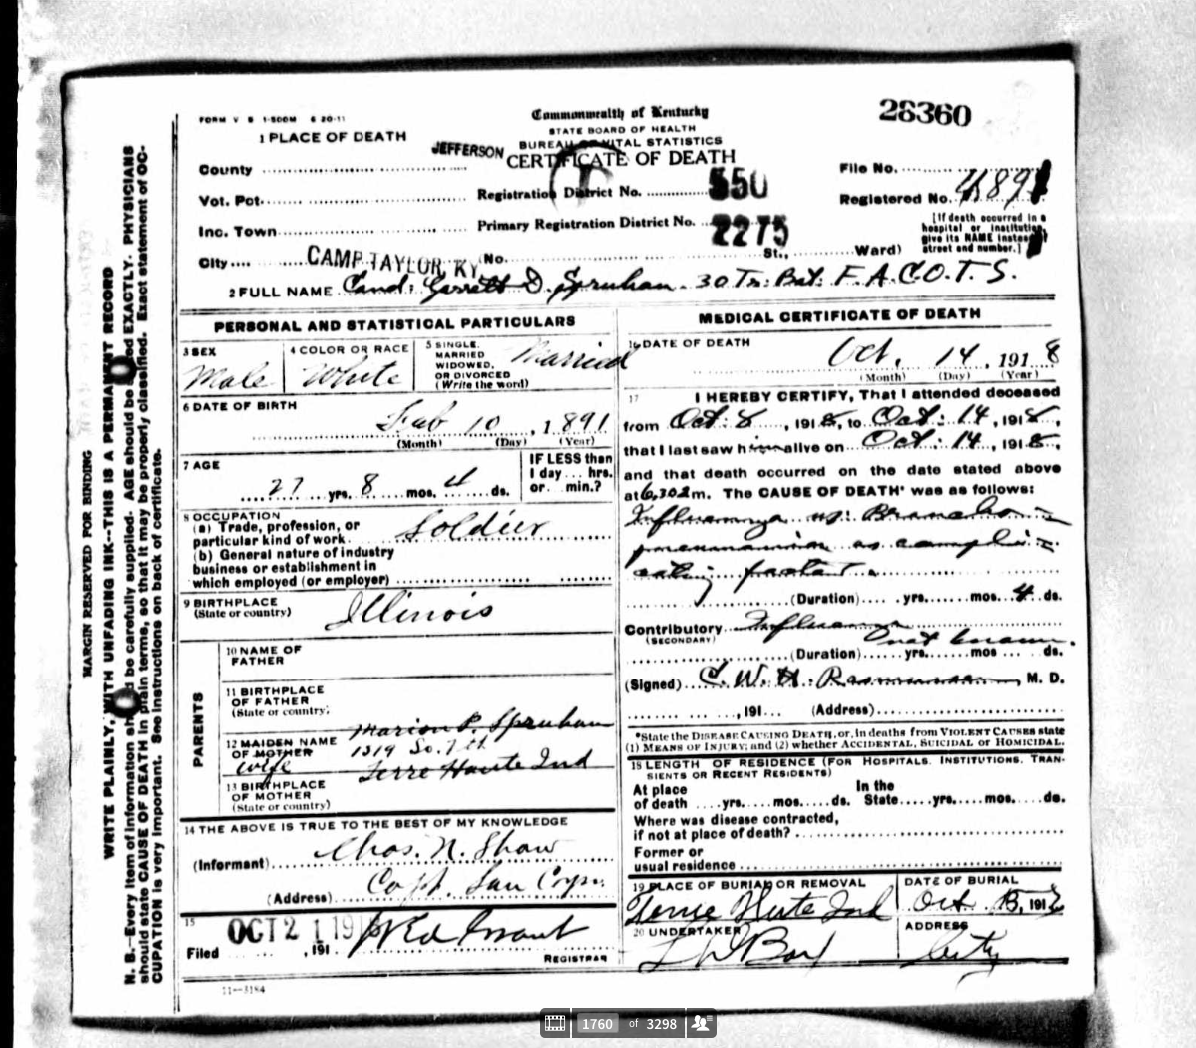 FORM V S 1-500M 6 20-11
Commonwealth of Kentucky
STATE BOARD OF HEALTH
BUREAU OF VITAL STATISTICS
CERTIFICATE OF DEATH
28360
1 PLACE OF DEATH
County JEFFERSON
Vot. Pct.
Inc. Town
City CAMP TAYLOR, KY. No. St., Ward)
Registration District No. 550
Primary Registration District No. 2275
File No.
Registered No. 4891
[If death occurred in a
hospital or institution,
give its NAME instead of
street and number.]
2 FULL NAME Cand: Garrett D. Spruhan. 30 Tr: Bat: F. A. C. O. T. S.
PERSONAL AND STATISTICAL PARTICULARS
3 SEX
Male
4 COLOR OR RACE
White
5 SINGLE,
MARRIED
WIDOWED,
OR DIVORCED
(Write the word)
Married
6 DATE OF BIRTH
Feb 10, 1891
(Month) (Day) (Year)
7 AGE
27 yrs. 8 mos. 4 ds.
IF LESS than
1 day... hrs.
or... min.?
8 OCCUPATION
(a) Trade, profession, or
particular kind of work. Soldier
(b) General nature of industry
business or establishment in
which employed (or employer)
9 BIRTHPLACE
(State or country) Illinois
PARENTS
10 NAME OF
FATHER
11 BIRTHPLACE
OF FATHER
(State or country)
Marion P. Spruhan
12 MAIDEN NAME
OF MOTHER
1319 So. 7th
wife Terre Haute Ind
13 BIRTHPLACE
OF MOTHER
(State or country)
14 THE ABOVE IS TRUE TO THE BEST OF MY KNOWLEDGE
(Informant) Chas. N. Shaw
(Address) Capt. San Corps.
15
Filed OCT 21 19, 191
REGISTRAR
11-3184
MEDICAL CERTIFICATE OF DEATH
16 DATE OF DEATH
Oct. 14, 1918
(Month) (Day) (Year)
17 I HEREBY CERTIFY, That I attended deceased
from Oct. 8, 1918, to Oct. 14, 1918,
that I last saw him alive on Oct. 14, 1918,
and that death occurred on the date stated above
at 6,30 a m. The CAUSE OF DEATH* was as follows:
Influenza w: Broncho-
pneumonia as compli-
cating factor.
(Duration) yrs. mos. 4 ds.
Contributory Influenza
(SECONDARY)
not known.
(Duration) yrs. mos ds.
(Signed) C. W. H. M. D.
, 191 (Address)
*State the DISEASE CAUSING DEATH, or, in deaths from VIOLENT CAUSES state
(1) MEANS OF INJURY; and (2) whether ACCIDENTAL, SUICIDAL or HOMICIDAL.
18 LENGTH OF RESIDENCE (FOR HOSPITALS, INSTITUTIONS, TRAN-
SIENTS OR RECENT RESIDENTS)
At place In the
of death yrs. mos. ds. State yrs. mos. ds.
Where was disease contracted,
if not at place of death?
Former or
usual residence
19 PLACE OF BURIAL OR REMOVAL
Terre Haute Ind
DATE OF BURIAL
Oct. 15, 191
20 UNDERTAKER
ADDRESS
City
MARGIN RESERVED FOR BINDING
WRITE PLAINLY, WITH UNFADING INK--THIS IS A PERMANENT RECORD
N. B.--Every item of information should be carefully supplied. AGE should be stated EXACTLY. PHYSICIANS
should state CAUSE OF DEATH in plain terms, so that it may be properly classified. Exact statement of OC-
CUPATION is very important. See instructions on back of certificate.
1760 of 3298